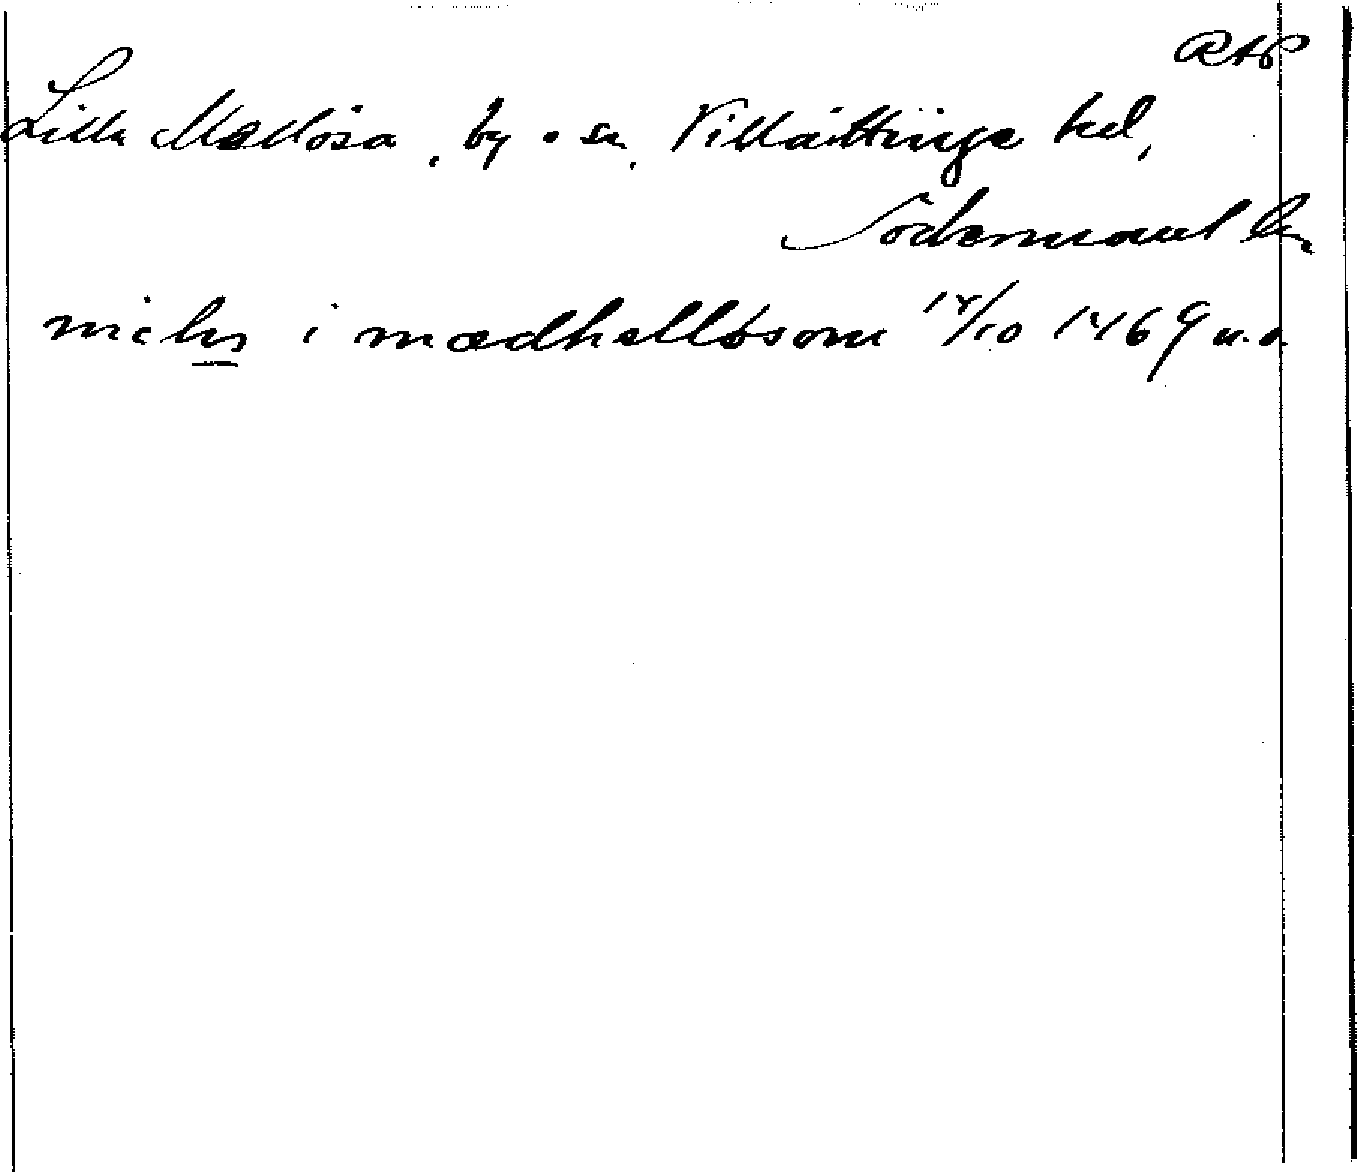 RAP
Lilla Mellösa, by o sn, Villåttinge hd,
Södermanl län
niclis i mædhelløsom 14/10 1469 u.o.